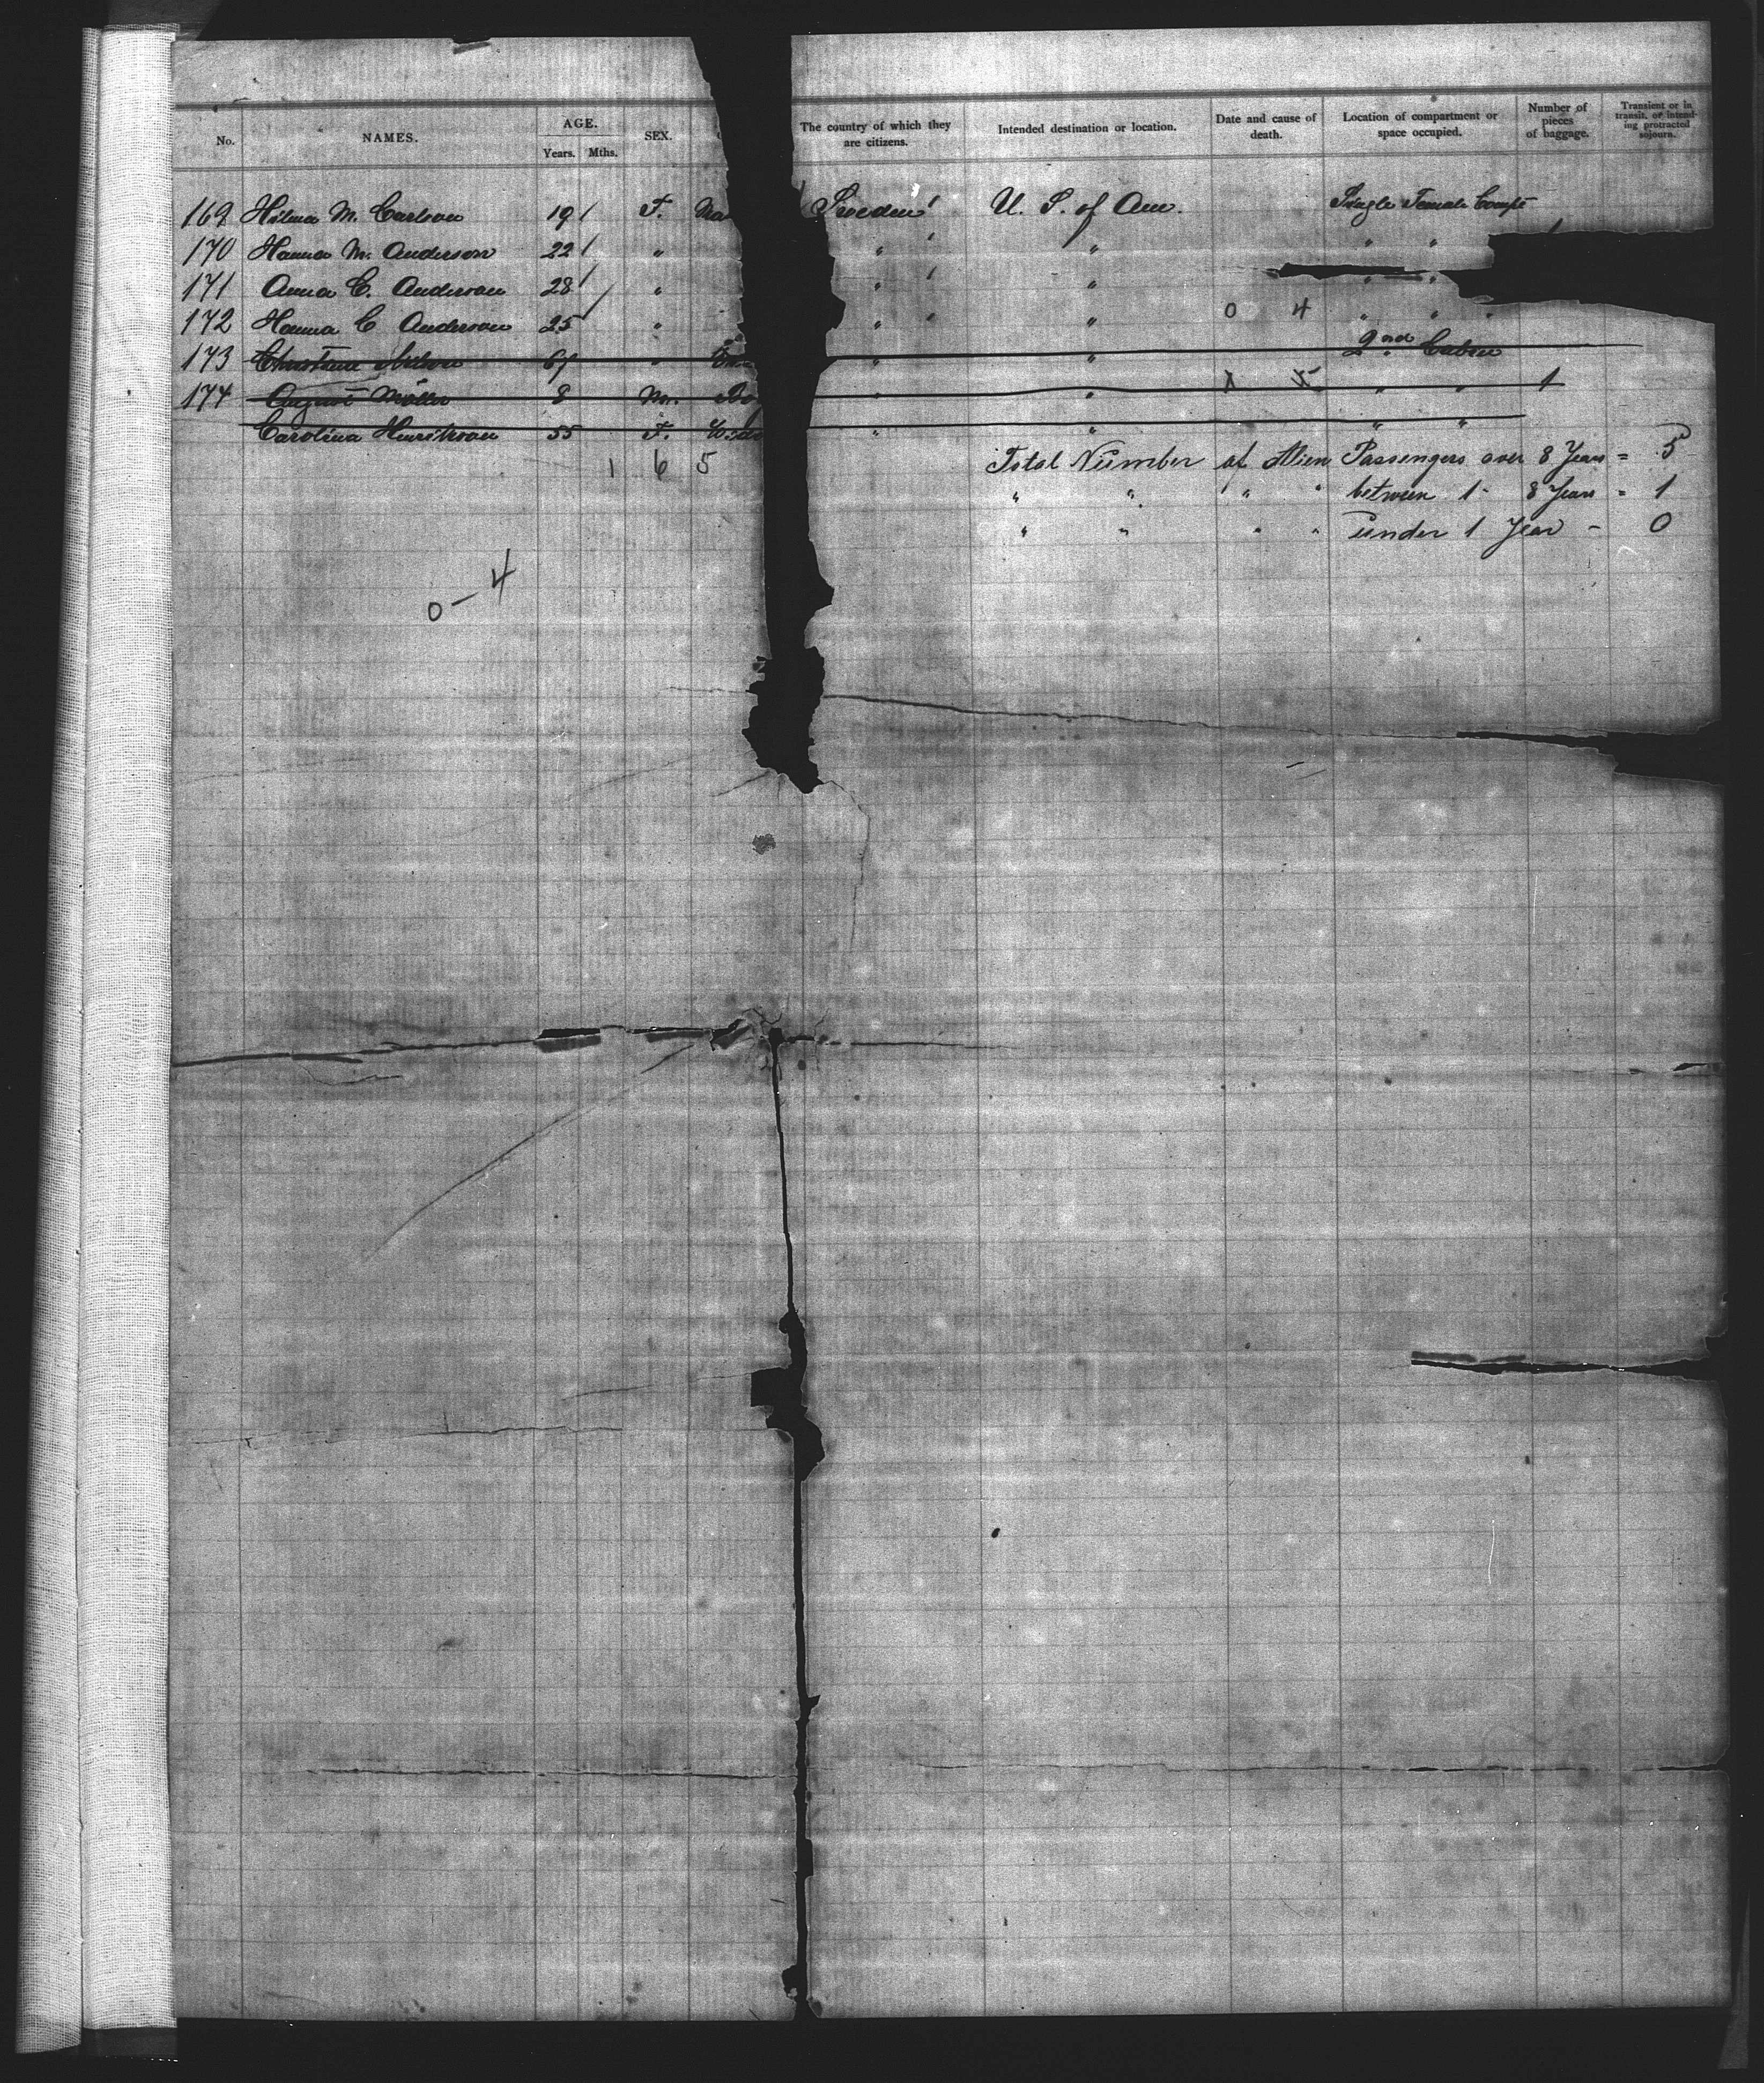 No. NAMES. AGE. Years. Mths. SEX. The country of which they are citizens. Intended destination or location. Date and cause of death. Location of compartment or space occupied. Number of pieces of baggage. Transient or in transit, or intending protracted sojourn.
169 Hilma M. Carlson 19 F. Sweden U. S. of Am. Single Female Compt
170 Hanna M. Anderson 22 " " " " "
171 Anna C. Anderson 28 " " " " "
172 Hanna C Anderson 25 " " " 0 4 " " "
173 Christine Nilson " " " 2nd Cabin
174 August Möller 8 M. " " 5 " " 1
Carolina Henrikson 55 F. " " " "
1 6 5 Total Number of Alien Passengers over 8 Years = 5
" " " " between 1 - 8 Years = 1
" " " " under 1 Year - 0
0 - 4